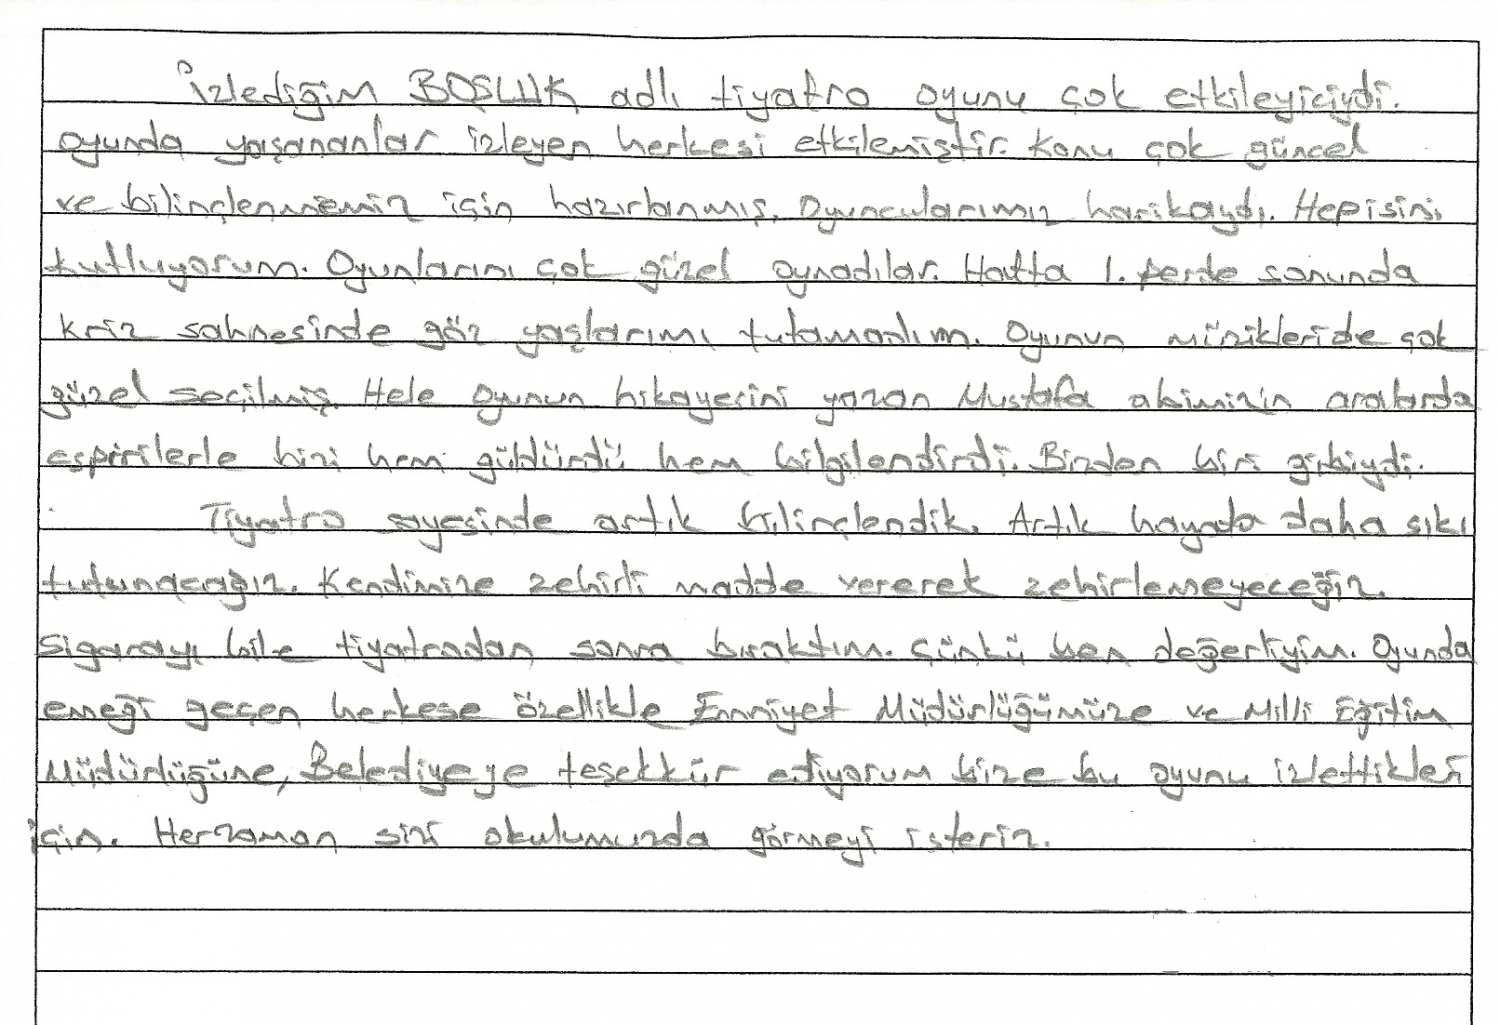 İzlediğim BOŞLUK adlı tiyatro oyunu çok etkileyiciydi.
Oyunda yaşananlar izleyen herkesi etkilemiştir. Konu çok güncel
ve bilinçlenmemiz için hazırlanmış. Oyuncularımız harikaydı. Hepisini
kutluyorum. Oyunlarını çok güzel oynadılar. Hatta 1. perde sonunda
kriz sahnesinde göz yaşlarımı tutamadım. Oyunun müzikleride çok
güzel seçilmiş. Hele oyunun hikayesini yazan Mustafa abimizin aralarda
espirilerle bizi hem güldürdü hem bilgilendirdi. Bizden biri gibiydi.
Tiyatro sayesinde artık bilinçlendik. Artık hayata daha sıkı
tutunacağız. Kendimize zehirli madde vererek zehirlemeyeceğiz.
Sigarayı bile tiyatrodan sonra bıraktım. Çünkü ben değerliyim. Oyunda
emeği geçen herkese özellikle Emniyet Müdürlüğümüze ve Milli Eğitim
Müdürlüğüne, Belediyeye teşekkür ediyorum bize bu oyunu izlettikleri
için. Herzaman sizi okulumuzda görmeyi isteriz.